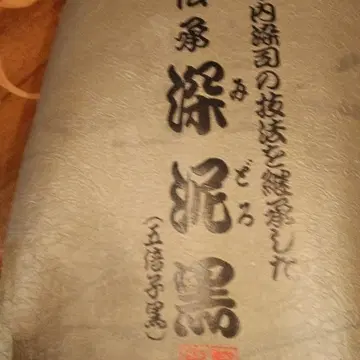 内染司の技法を継承した
伝承 深泥黒
み どろ
(五倍子黒)